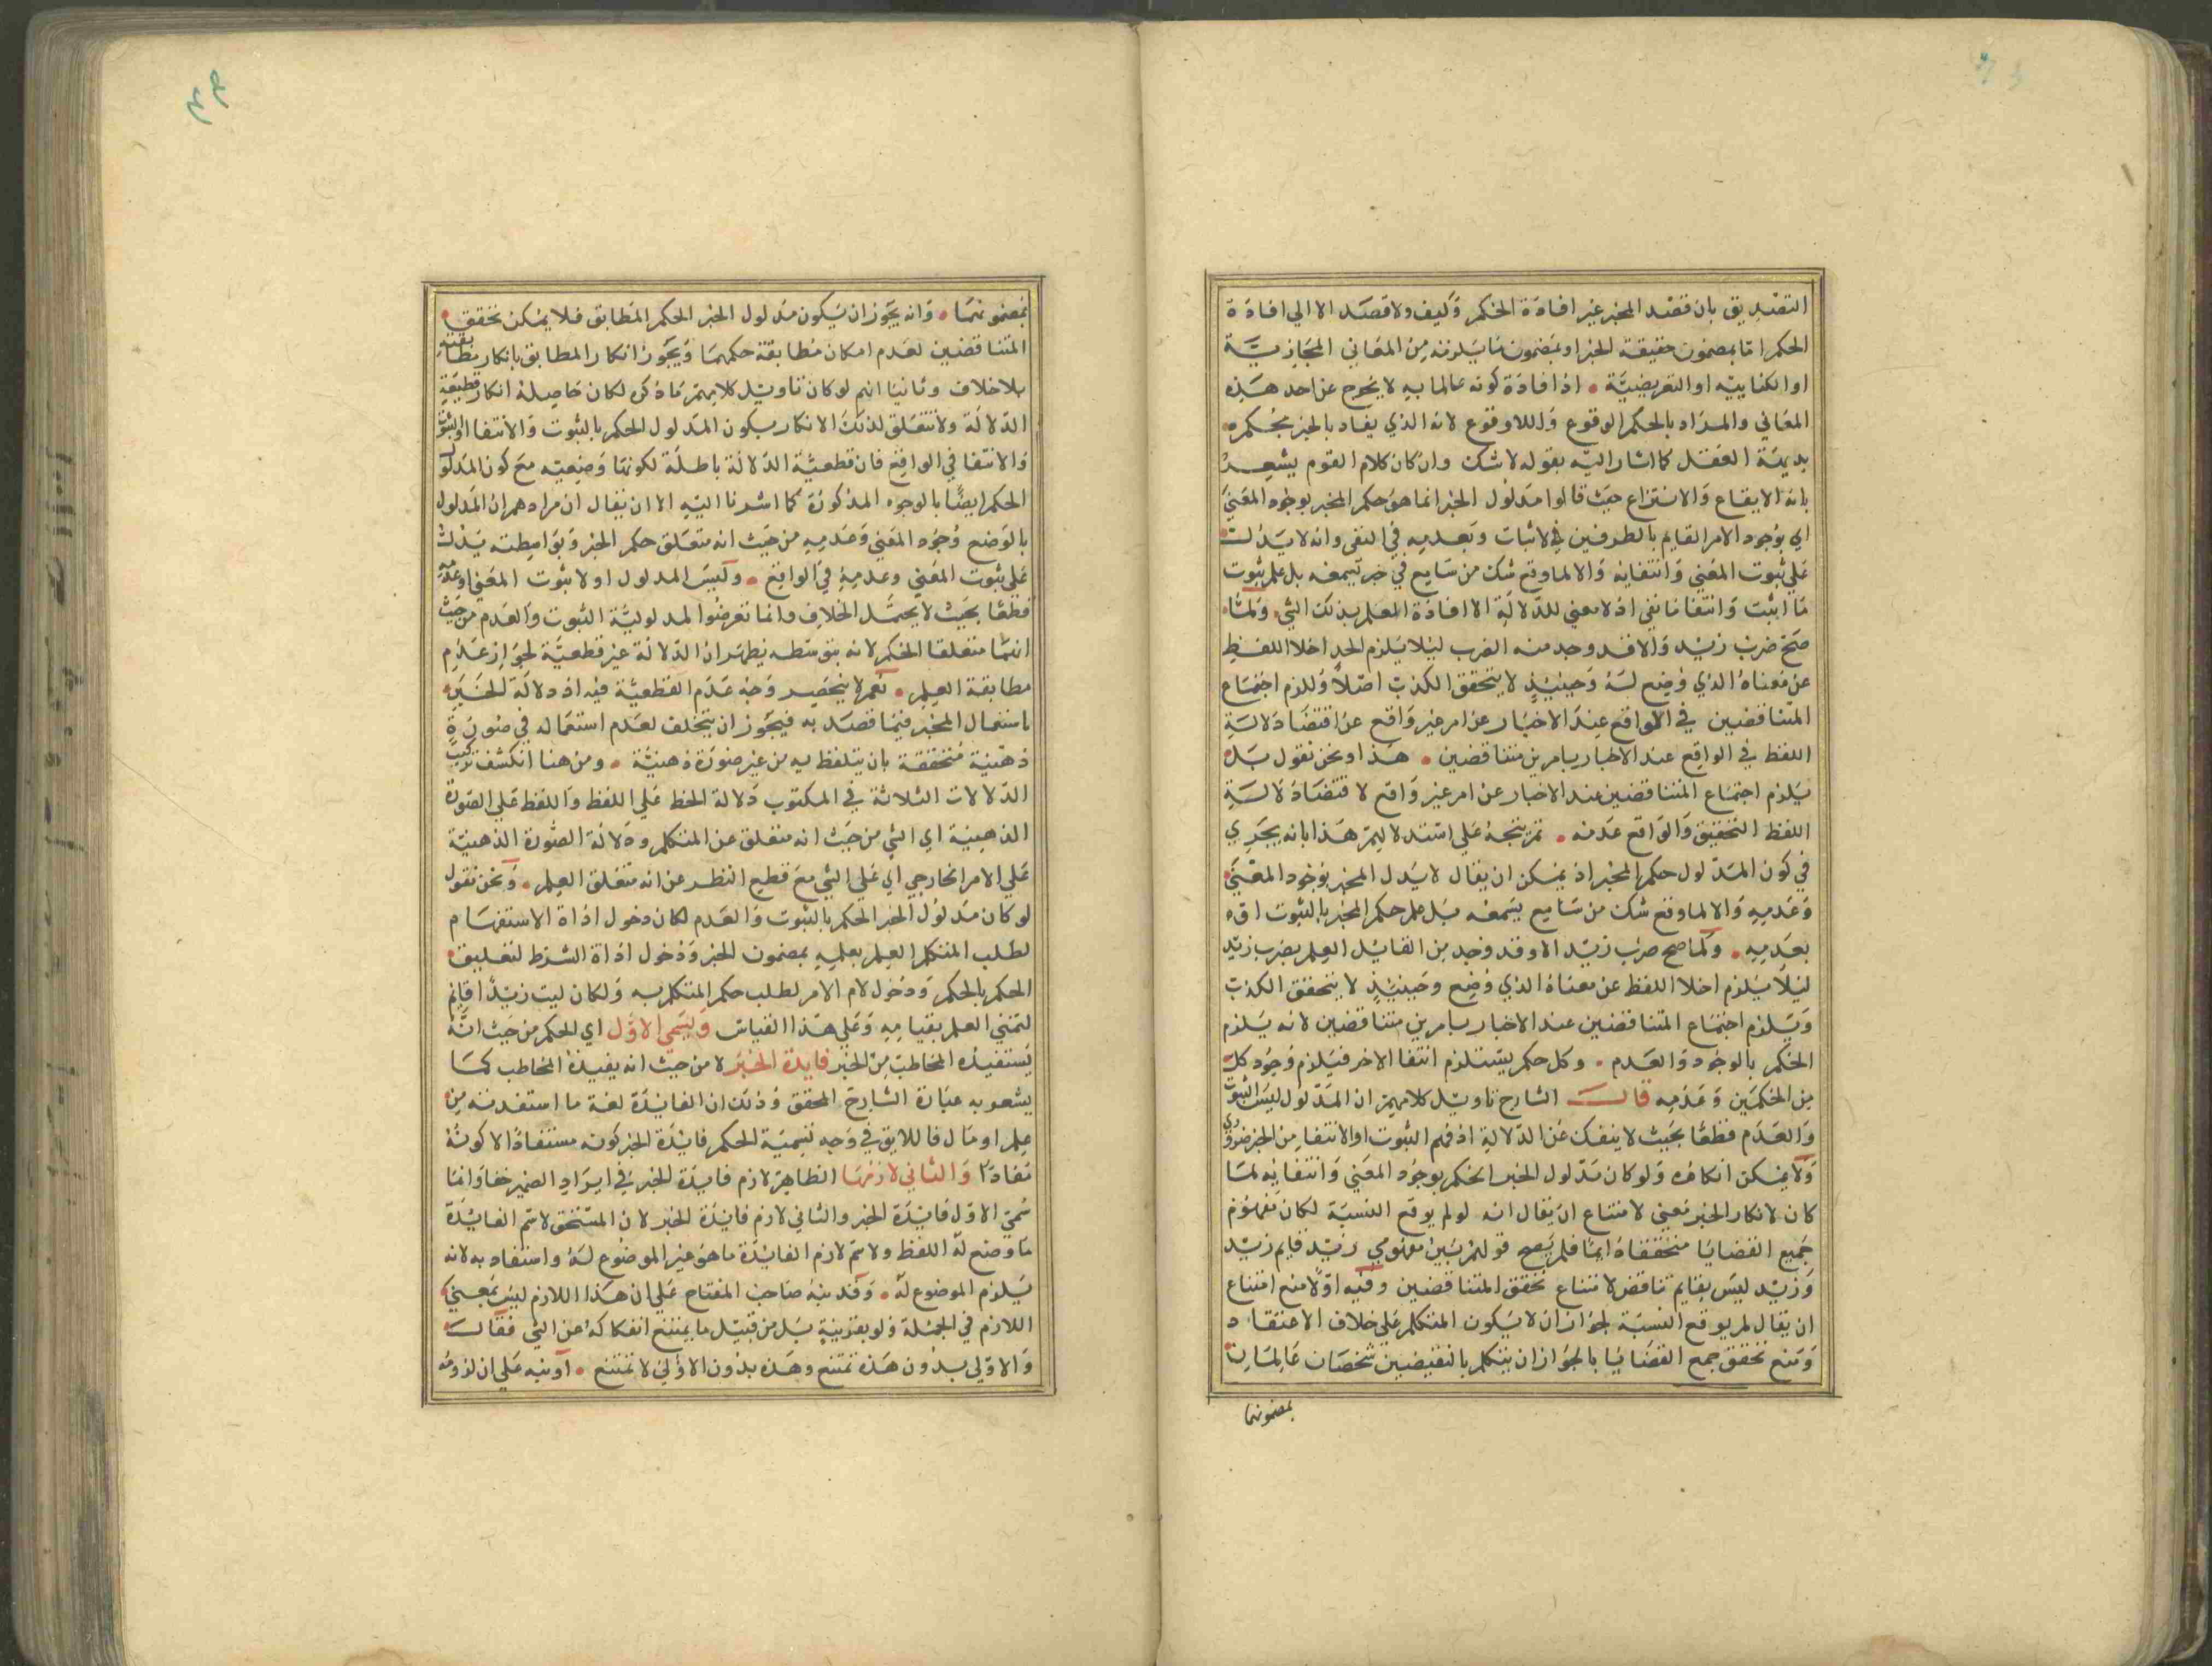 التصديق بان قصد المخبر غير افادة الحكم وكيف ولا قصد الا الي افادة
الحكم اما بمضمون حقيقة الخبر او بمضمون ما يلزمه من المعاني المجازية
او الكناييه او التعريضية • اذ افادة كونه عالما به لا يخرج عن احد هذه
المعاني والمراد بالحكم الوقوع واللاوقوع لانه الذي يفاد بالخبر بحكم
بديهة العقل كما اشار اليه بقوله لا شك وان كان كلام القوم يشعر
بانه الايقاع والانتزاع حيث قالوا مدلول الخبر انما هو حكم المخبر بوجود المعني
اي بوجود الامر القايم بالطرفين في الاثبات وبعدمه في النفي وانه لا يدل
علي ثبوت المعني وانتفايه والا لما وقع شك من سامع في خبر يسمعه بل علم ثبوت
ما اثبت وانتفا ما نفي اذ لا معني للدلالة الا افادة العلم بذلك الشي ولما
صح ضرب زيد والا قد وجد منه الضرب ليلا يلزم الحد اخلا اللفظ
عن معناه الذي وضع له وحينيذ لا يتحقق الكذب اصلا وللزم اجتماع
المتناقضين في الواقع عند الاخبار عن امر غير واقع عن اقتضا دلالة
اللفظ في الواقع عند الاخبار بامرين متناقضين • هذا ونحن نقول بل
يلزم اجتماع المتناقضين عند الاخبار عن امر غير واقع لاقتضا دلالة
اللفظ التحقيق والواقع عدمه • ثم يتجه علي استدلاليم هذا بانه يجري
في كون المدلول حكم المخبر اذ يمكن ان يقال لا يدل المخبر بوجود المعني
وعدمه والا لما وقع شك من سامع يسمعه بل علم حكم المخبر بالثبوت او
بعدمه • ولما صح ضرب زيد الا وقد وجد من القايل العلم بضرب زيد
ليلا يلزم اخلا اللفظ عن معناه الذي وضع وحينيذ لا يتحقق الكذب
ويلزم اجتماع المتناقضين عند الاخبار بامرين متناقضين لانه يلزم
الحكم بالوجود والعدم • وكل حكم يستلزم انتفا الاخر فيلزم وجود كل
من الحكمين وعدمه قال الشارح تاويل كلامهم ان المدلول ليس الثبوت
والعدم قطعا بحيث لا ينفك عن الدلالة اذ فهم الثبوت او الانتفا من الخبر ضروري
ولا يمكن انكاره ولو كان مدلول الخبر الحكم بوجود المعني وانتفايه لما
كان لانكار الخبر معني لامتناع ان يقال انه لم يوقع النسبة لكان مفهوم
جميع القضايا متحققا دايما فلم يصح قولهم بين مفهومي زيد قايم زيد
وزيد ليس بقايم تناقض لامتناع تحقق المتناقضين وفيه اولا منع امتناع
ان يقال لم يوقع النسبة لجواز ان لا يكون المتكلم علي خلاف الاعتقاد
ومنع تحقق جمع القضايا بالجواز ان يتكلم بالنقيضين شخصان عالمان
بمضمونهما
بمضمونهما • وانه يجوز ان يكون مدلول الخبر الحكم المطابق فلا يمكن تحقق
المتناقضين لعدم امكان مطابقة حكمهما ويجوز انكار المطابق بانكار مطابقته
بلا خلاف وثانيا انه لو كان تاويل كلامهم ما ذكر لكان حاصله انكار قطعية
الدلالة ولا تتعلق لذلك الانكار بكون المدلول الحكم بالثبوت والانتفا او الثبوت
والانتفا في الواقع فان قطعية الدلالة باطلة لكونها وضعية مع كون المدلول
الحكم ايضا بالوجوه المذكورة كما اشرنا اليه الا ان يقال ان مرادهم ان المدلول
بالوضع وجود المعني وعدمه من حيث انه متعلق حكم الخبر وبواسطته يدل
علي ثبوت المعني وعدمه في الواقع • وليس المدلول اولا ثبوت المعني او عدمه
قطعا بحيث لا يحتمل الخلاف وانما تعرضوا لمدلولية الثبوت والعدم من حيث
انهما متعلقا الحكم لانه بتوسطه يظهر ان الدلالة غير قطعية لجواز عدم
مطابقة العلم • نعم لا ينحصر وجه عدم القطعية فيه اذ دلالة الخبر
باستعمال المخبر فيما قصد به فيجوز ان يتخلف لعدم استعماله في صورة
ذهنية متحققة بان يتلفظ به من غير صورة ذهنية • ومن هنا انكشف ترتب
الدلالات الثلاثة في المكتوب دلالة الخط علي اللفظ واللفظ علي الصورة
الذهنية اي الشي من حيث انه متعلق عن المتكلم ودلالة الصورة الذهنية
علي الامر الخارجي اي علي الشي مع قطع النظر عن انه متعلق العلم • ونحن نقول
لو كان مدلول الخبر الحكم بالثبوت والعدم لكان دخول اداة الاستفهام
لطلب المتكلم العلم بعلمه بمضمون الخبر ودخول اداة الشرط لتعليق
الحكم بالحكم ودخول لام الامر لطلب حكم المتكلم به ولكان ليت زيدا قايم
لتمني العلم بقيامه وعلي هذا القياس ويسمي الاول اي الحكم من حيث انه
يستفيده المخاطب من الخبر فايدة الخبر لا من حيث انه يفيده المخاطب كما
يشعر به عبارة الشارح المحقق وذلك ان الفايدة لغة ما استفدته من
علم او مال فاللايق في وجه تسمية الحكم فايدة الخبر كونه مستفادا لا كونه
مفادا والثاني لازمها الظاهر لازم فايدة الخبر في ايراد الضمير خفا وانما
سمي الاول فايدة الخبر والثاني لازم فايدة الخبر لان المستحق لاسم الفايدة
ما وضع له اللفظ ولاسم لازم الفايدة ما هو غير الموضوع له واستفاد به لانه
يلزم الموضوع له • وقد نبه صاحب المفتاح علي ان هذا اللازم ليس بمعني
اللازم في الجملة ولو بقرينة بل من قبيل ما يمتنع انفكاكه عن الشي فقال
والاولي بدون هذه تمتنع وهذه بدون الاولي لا تمتنع • اونبه علي ان لزومه